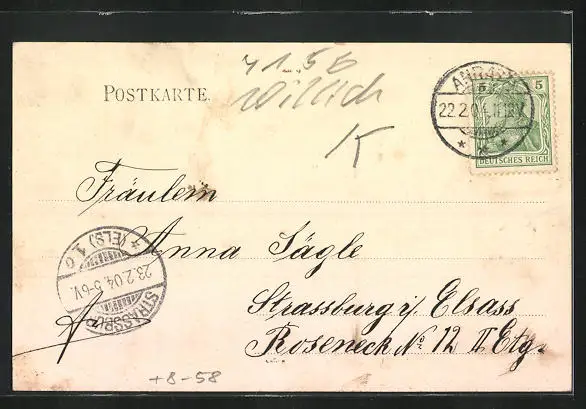 4156
Willich
K
POSTKARTE.
ANRATH
22.2.04.11-12V.
5
DEUTSCHES REICH
Fräulein
Anna Sägle
Strassburg i/ Elsass
Roseneck No 12 II Etg.
STRASSBURG
* (ELS) 1 o
23.2.04.5-6V.
+8-58